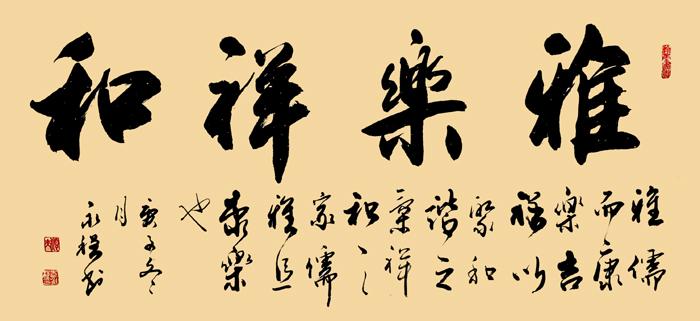 雅樂祥和
雅儒
而康
樂吉
福以
聚和
諧之
氣祥
和之
家儒
雅且
樂
也
庚子冬
月
永書